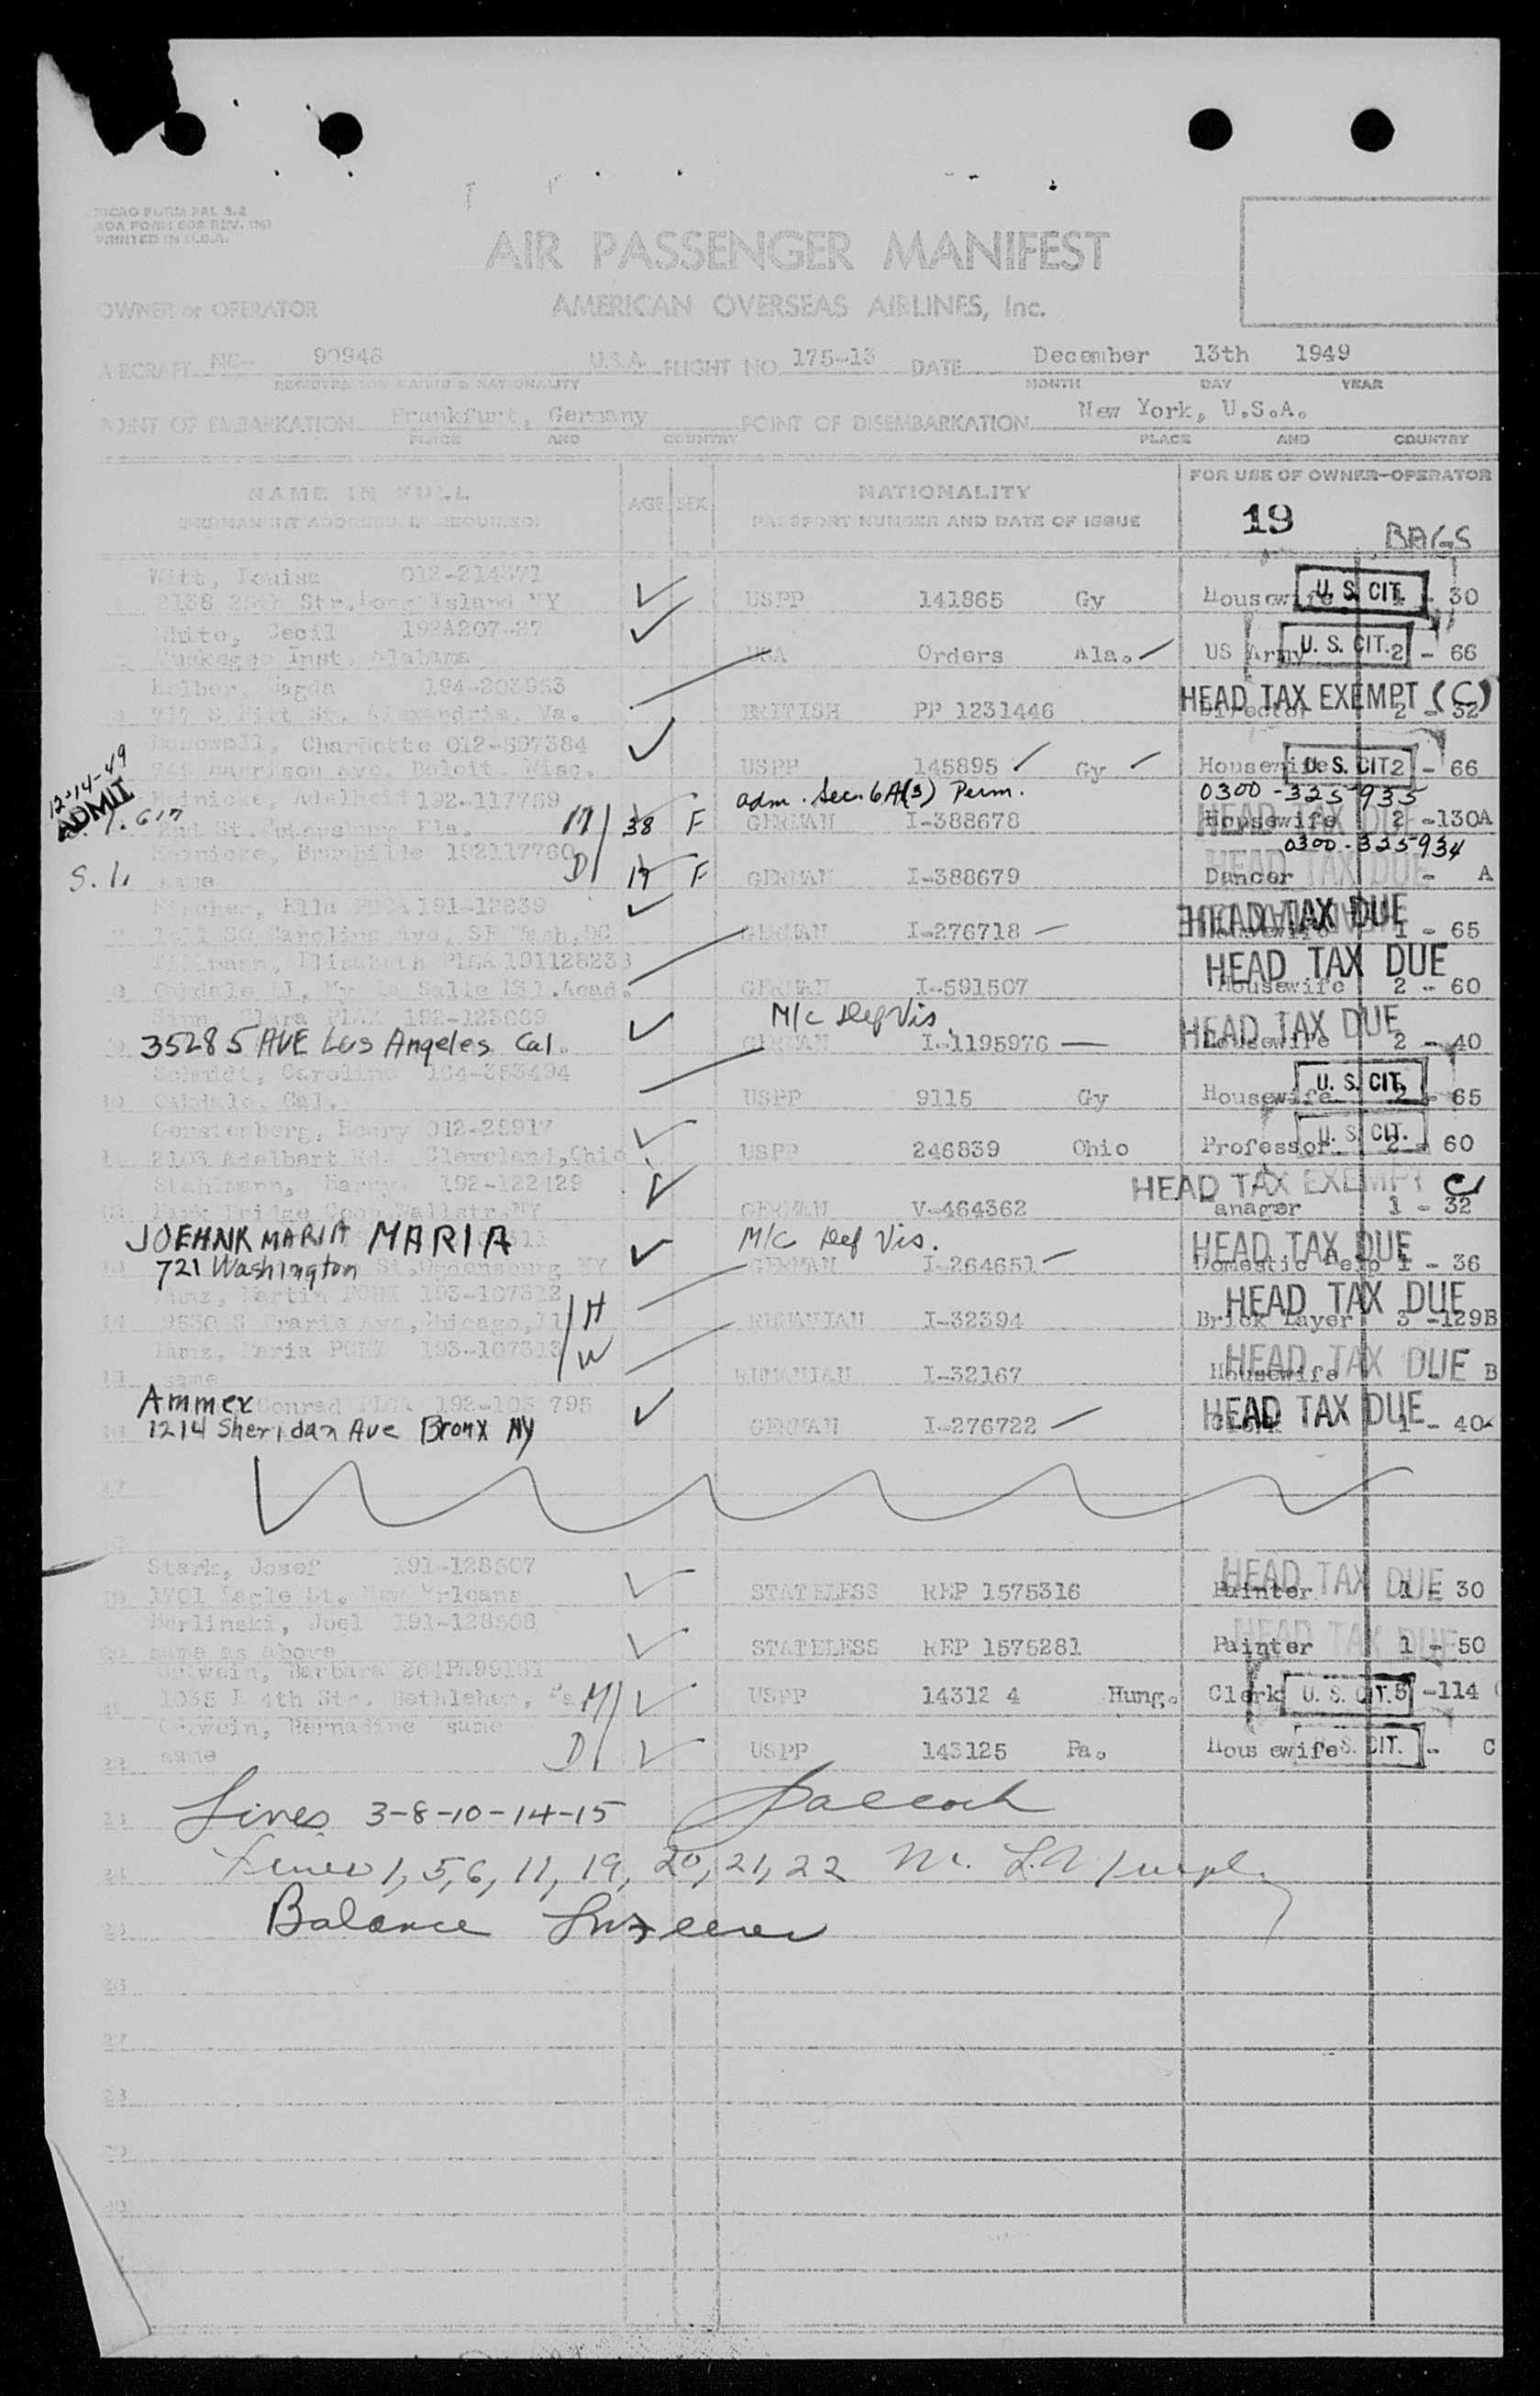 ICAO FORM FAL 3.2
AOA FORM 608 REV.
PRINTED IN U.S.A.
AIR PASSENGER MANIFEST
OWNER or OPERATOR AMERICAN OVERSEAS AIRLINES, Inc.
AIRCRAFT NC- 90946 U.S.A. FLIGHT NO. 175-13 DATE December 13th 1949
REGISTRATION MARKS & NATIONALITY MONTH DAY YEAR
POINT OF EMBARKATION Frankfurt, Germany POINT OF DISEMBARKATION New York, U.S.A.
PLACE AND COUNTRY PLACE AND COUNTRY
NAME IN FULL AGE SEX NATIONALITY FOR USE OF OWNER-OPERATOR
(PERMANENT ADDRESS IF REQUIRED) PASSPORT NUMBER AND DATE OF ISSUE 19 BAGS
Witt, Louise 012-214571
2138 28th Str, Long Island NY USPP 141865 Gy Housewife U. S. CIT. 1 - 30
White, Cecil 19?A207-27
Tuskegee Inst. Alabama USA Orders Ala. US Army U. S. CIT. 2 - 66
Magda 194-203953 HEAD TAX EXEMPT (C)
3 717 S Pitt St. Alexandria, Va. BRITISH PP 1231446 Director 2 - 32
Charlotte 012-597384
Harrison Ave. Beloit, Wisc. USPP 145895 Gy Housewife U. S. CIT. 2 - 66
12-14-49
ADMIT
Heinicke, Adelheid 192-117759 adm. Sec. 6A(3) Perm. 0300-325935
2nd St. Petersburg Fla. M 38 F GERMAN I-388678 Housewife HEAD TAX DUE 2 -130A
Heinicke, Brunhilde 192117760 0300-325934
S. I. same D 17 F GERMAN I-388679 Dancer HEAD TAX DUE - A
Fischer, Ella 191-12839 HEAD TAX DUE
SO Carolina Ave, SE Wash, DC GERMAN I-276718 Housewife 1 - 65
Elisabeth 191128233 HEAD TAX DUE
8 Oakdale La Salle GERMAN I-591507 Housewife 2 - 60
Clara 192-123089 M/c Def Vis. HEAD TAX DUE
3528 5 AVE Los Angeles Cal. GERMAN I-1195976 Housewife 2 - 40
Schmidt, Caroline 164-383494
10 Oakdale, Cal. USPP 9115 Gy Housewife U. S. CIT. 2 - 65
Gerstenberg, Henry 012-28917
11 2103 Adelbert Rd. Cleveland, Ohio USPP 246839 Ohio Professor U. S. CIT. 2 - 60
Stahlmann, Harry 192-122429 HEAD TAX EXEMPT C
12 Park Bridge Wallstr. NY GERMAN V-464362 anager 1 - 32
JOEHNK MARIA MARIA M/c Def Vis. HEAD TAX DUE
13 721 Washington St, Ogdensburg NY GERMAN I-264651 Domestic Help 1 - 36
Martin 193-107312 H HEAD TAX DUE
14 9630 S Praria Ave, Chicago, Ill RUMANIAN I-32394 Brick Layer 3 -129B
Maria 193-107313 W HEAD TAX DUE
15 same RUMANIAN I-32167 Housewife B
Ammer Conrad 192-105 795 HEAD TAX DUE
16 1214 Sheridan Ave Bronx NY GERMAN I-276722 Clerk 1 - 40
17
18
Stark, Josef 191-128507 HEAD TAX DUE
19 1701 Eagle St. New Orleans STATELESS REP 1575316 Painter 1 - 30
Berlinski, Joel 191-128508 HEAD TAX DUE
20 same as above STATELESS REP 1575281 Painter 1 - 50
Ortwein, Barbara
21 1035 E 4th Str. Bethlehem, Pa M USPP 14312 4 Hung. Clerk U. S. CIT. 3 -114
Ortwein, Bernadine same
22 same D USPP 143125 Pa. Housewife S. CIT. - C
23 Lines 3-8-10-14-15
24 Lines 1, 5, 6, 11, 19, 20, 21, 22
25 Balance
26
27
28
29
30